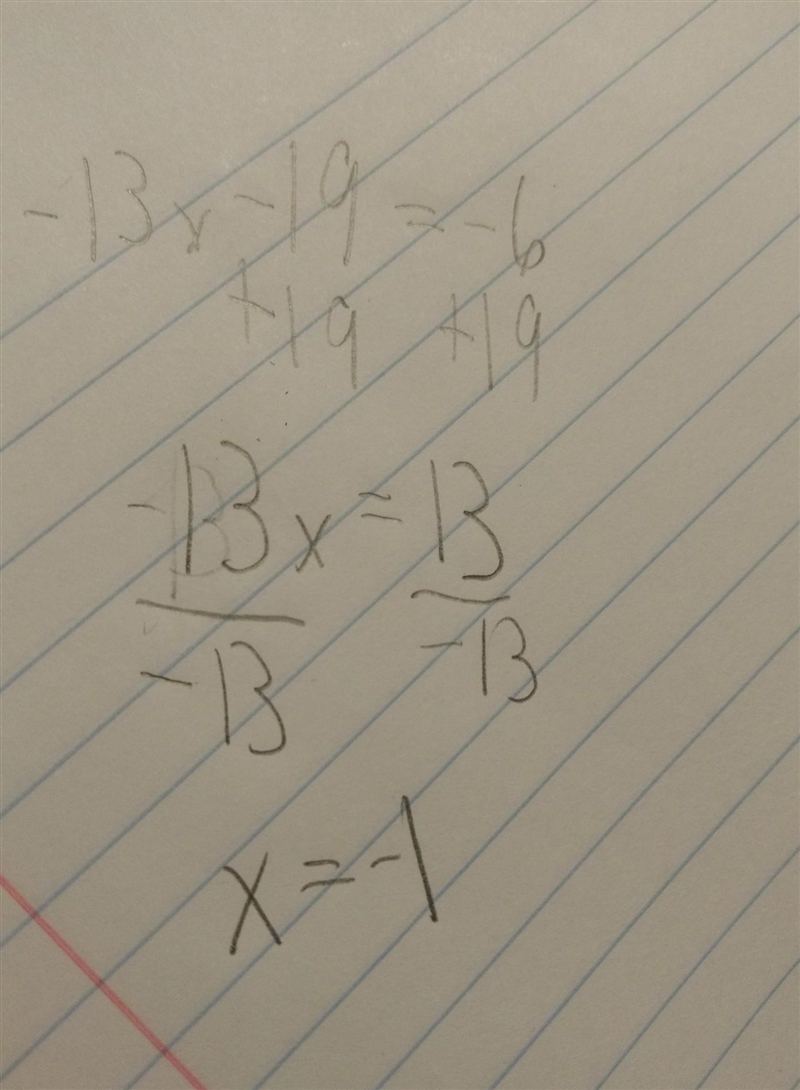 -13x -19 = -6
+19 +19
-13x = 13
-13 -13
x = -1